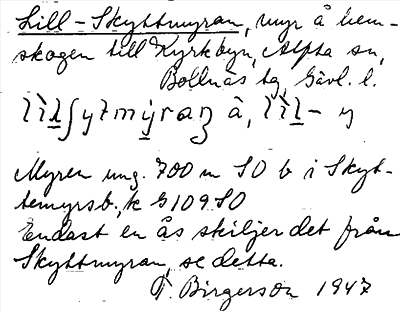 Lill-Skyttmyran, myr å hem-
skogen till Kyrkbyn, Alfta sn,
Bollnäs tg, Gävl. l.
Myren ung. 700 m SO b i Skyt-
temyrsb., k G109SO
Endast en ås skiljer det från
Skyttmyran, se detta.
T. Birgerson 1947